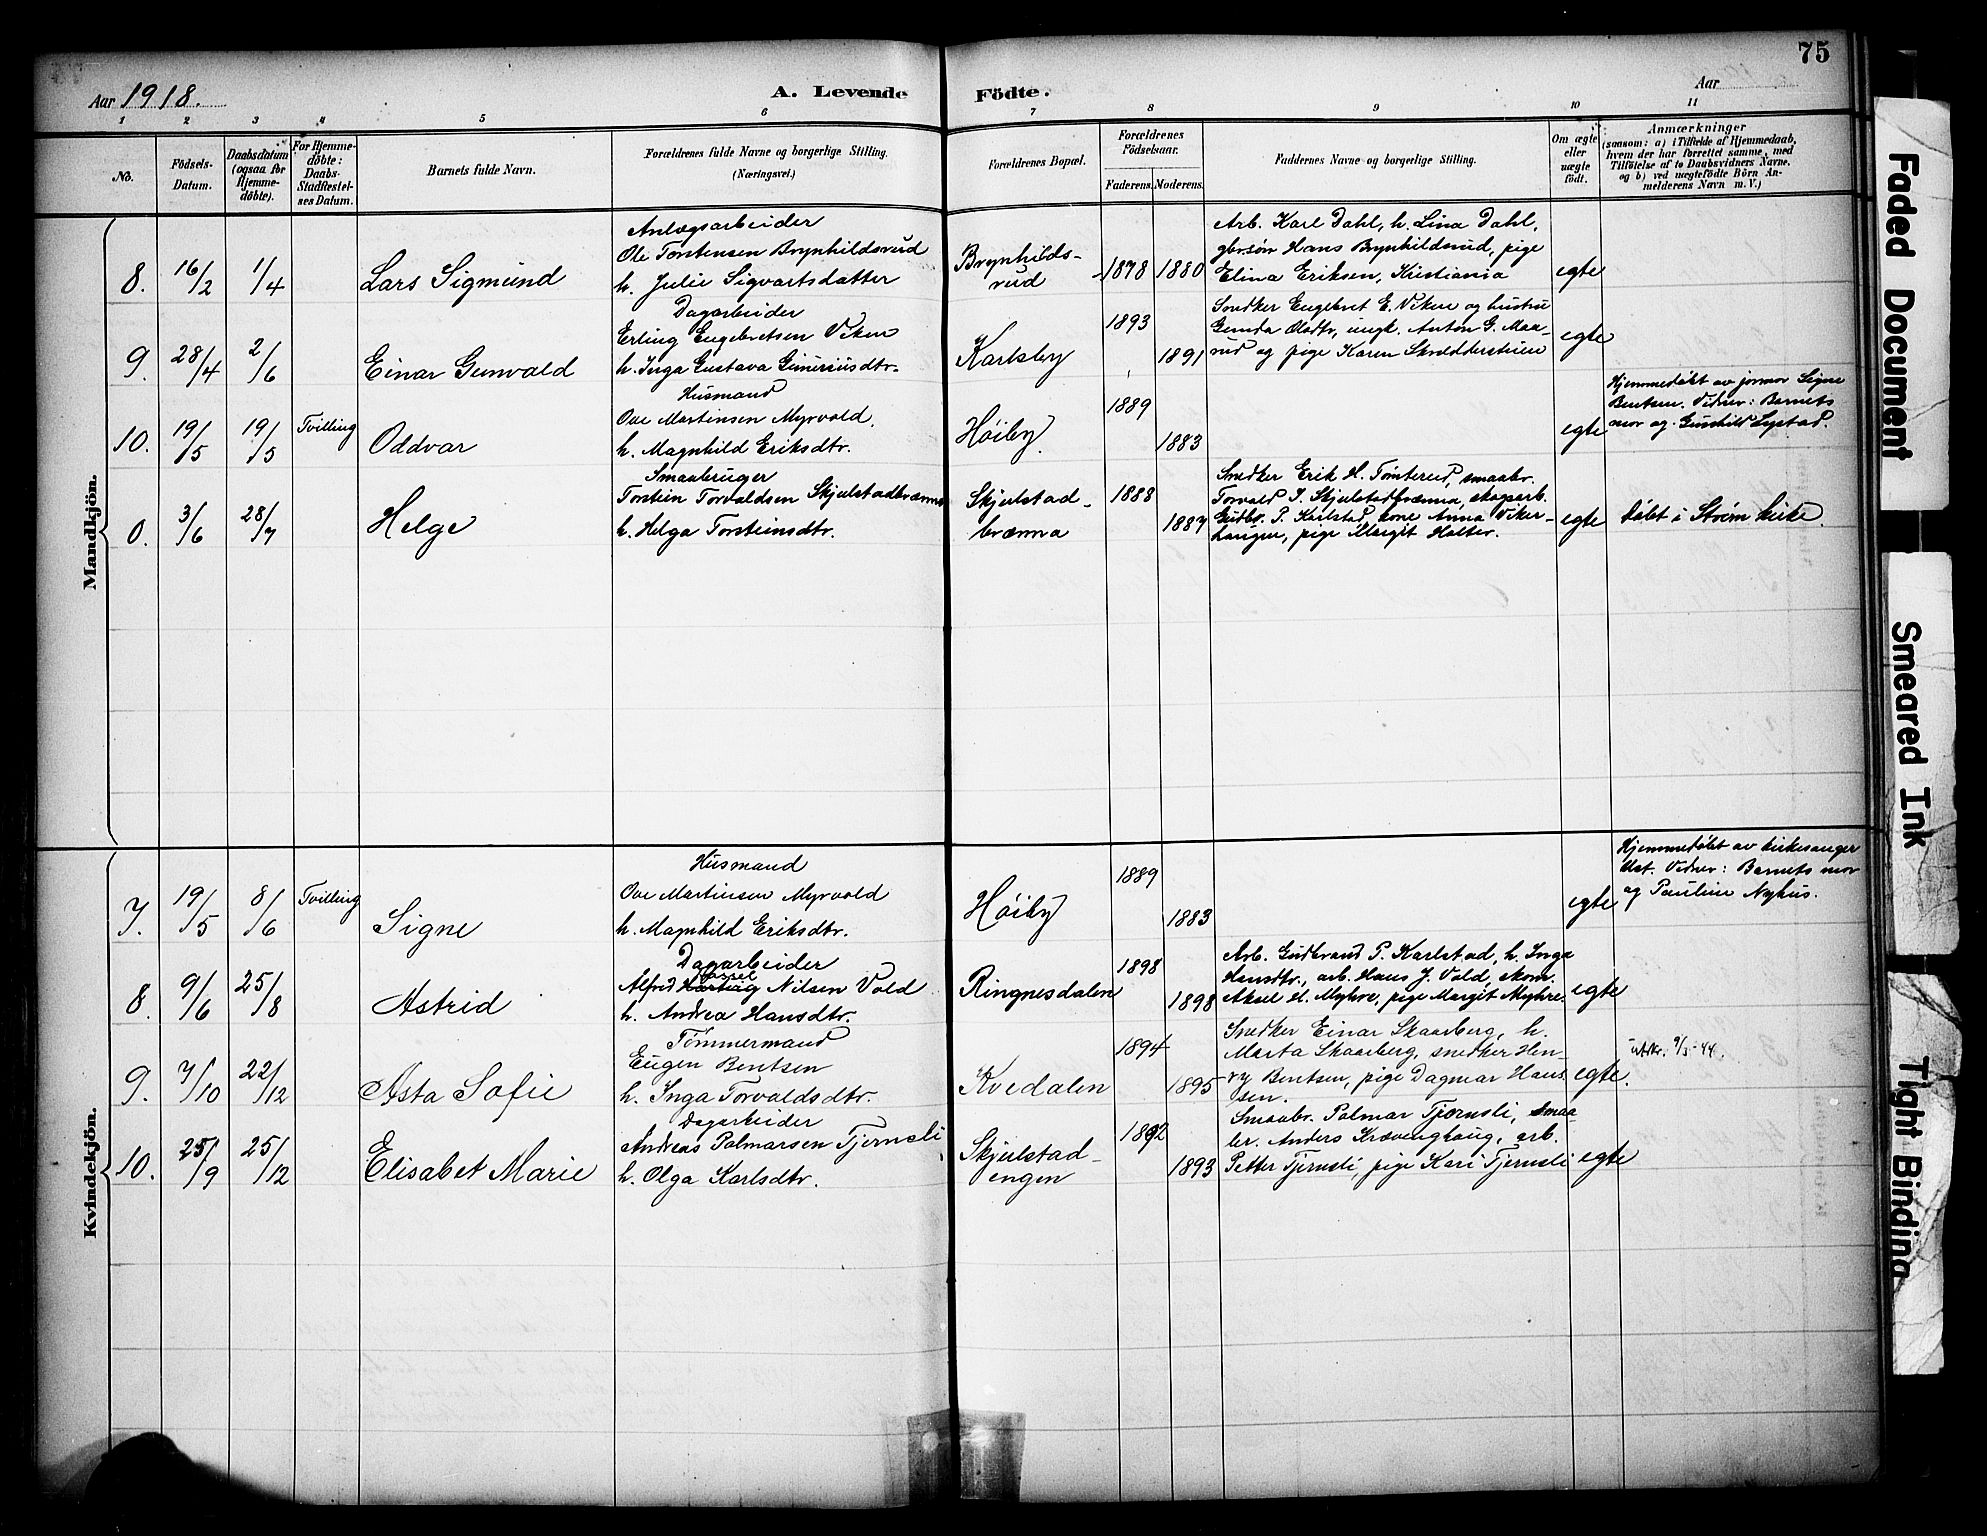 75
Aar 1918.
A. Levende Födte.
Aar
1 2 3 4 5 6 7 8 9 10 11
No.
Födsels-
Datum.
Daabsdatum
(ogsaa for
Hjemme-
döbte).
For Hjemme-
döbte:
Daabs-
Stadfæstel-
ses Datum.
Barnets fulde Navn.
Forældrenes fulde Navne og borgerlige Stilling.
(Næringsvei.)
Forældrenes Bopæl.
Forældrenes
Födselsaar.
Faderens.
Moderens.
Faddernes Navne og borgerlige Stilling.
Om ægte
eller
uægte
födt.
Anmærkninger
(saasom: a) i Tilfælde af Hjemmedaab,
hvem der har forrettet samme, med
Tilföielse af to Daabsvidners Navne.
og b) ved uægtefödte Börn An-
melderens Navn m. V.)
Mandkjön.
8.
16/2
1/4
Lars Sigmund
Anlægsarbeider
Ole Torstensen Brynhildsrud
h. Julie Sigvartsdatter
Brynhilds-
rud
1878
1880
Arb. Karl Dahl, h. Lina Dahl,
gbrsøn Hans Brynhildsrud, pige
Elina Eriksen, Kristiania
egte
9.
28/4
2/6
Einar Gunvald
Dagarbeider
Erling Engebretsen Viken
h. Inga Gustava Guneriusdtr.
Karlsby
1893
1891
Snedker Engebret E. Viken og hustru
Gunda Olsdtr, ungk. Anton G. Maa-
rud og pige Karen Skrædderstuen
egte
10.
19/5
19/5
Tvilling
Oddvar
Husmand
Ove Martinsen Myrvold,
h. Magnhild Eriksdtr.
Høiby
1889
1883
egte
Hjemmedøbt av jormor Signe
Bentsen. Vidner: Barnets
mor og Gunhild Lystad.
0.
3/6
28/7
Helge
Smaabruger
Torstein Torvaldsen Skjulstadbrænna
h. Helga Torsteinsdtr.
Skjulstad-
brænna
1888
1887
Snedker Erik H. Tømterud, smaabr.
Torvald J. Skjulstadbrænna, skogsarb.
Gudbr. P. Karlstad, kone Anna Viker-
haugen, pige Margit Halter.
egte
døbt i Strøm kirke.
Kvindekjön.
7.
19/5
8/6
Tvilling
Signe
Husmand
Ove Martinsen Myrvold
h. Magnhild Eriksdtr.
Høiby
1889
1883
egte
Hjemmedøbt av kirkesanger
Vidner: Barnets mor
og Pauline Nyhus.
8.
9/6
25/8
Astrid
Dagarbeider
Hassel
Alfred Hartvig Nilsen Vold
h. Andrea Hansdtr.
Ringnesdalen
1898
1898
Arb. Gudbrand P. Karlstad, h. Inga
Hansdtr., arb. Hans J. Vold, skom.
Aksel H. Myhre, pige Margit Myhre.
egte
9.
7/10
22/12
Asta Sofie
Tømmermand
Eugen Bentsen
h. Inga Torvaldsdtr.
Kvedalen
1894
1895
Snedker Einar Skaarberg, h.
Marta Skaarberg, snedker Hen-
ry Bentsen, pige Dagmar Han-
sen.
egte.
9/3-44.
10.
25/9
25/12
Elisabet Marie
Dagarbeider
Andreas Palmarsen Tjernsli
h. Olga Karlsdtr.
Skjulstad-
engen
1892
1893
Smaabr. Palmar Tjærnsli, smaa-
br. Anders Krævenghaug, arb.
Petter Tjernsli, pige Kari Tjernsli
egte
Faded Document
Smeared Ink
Tight Binding